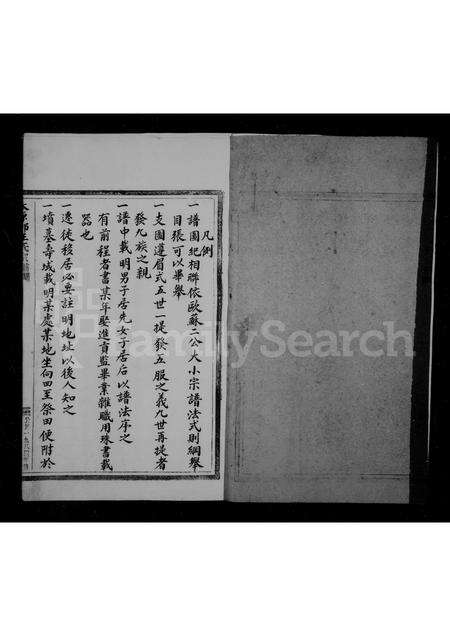 凡例
一譜圖紀相聯依歐蘇二公大小宗譜法式則綱舉
目張可以畢舉
一支圖遵眉式五世一提發五服之義九世再提者
發九族之親
一譜中載明男子居先女子居后以譜法序之
有前程者書某年娶進貢監畢業雜職用殊書載
器也
一遷徙移居必要註明地址以後人知之
一墳墓壽域載明某處某地坐向四至祭田便附於
FamilySearch